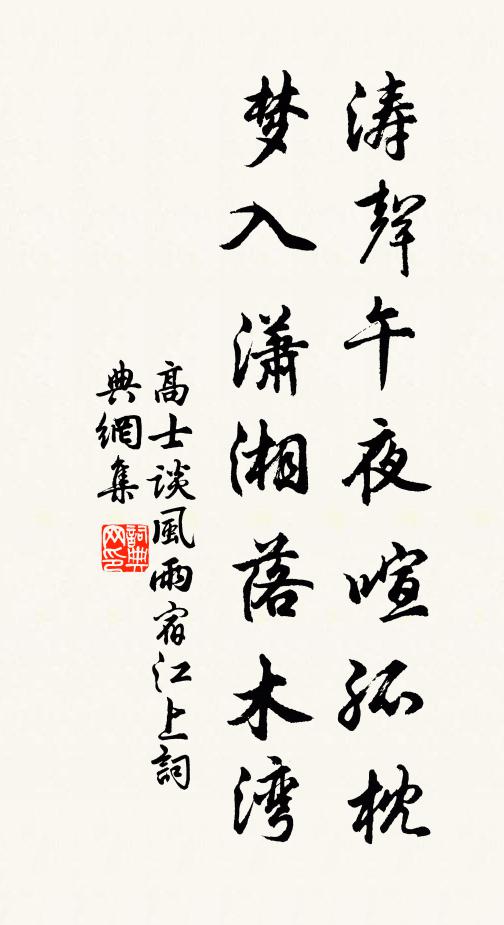 涛聲午夜喧孤枕
梦入瀟湘落木湾
高士谈風雨宿江上詞
典網集
詞典
网印